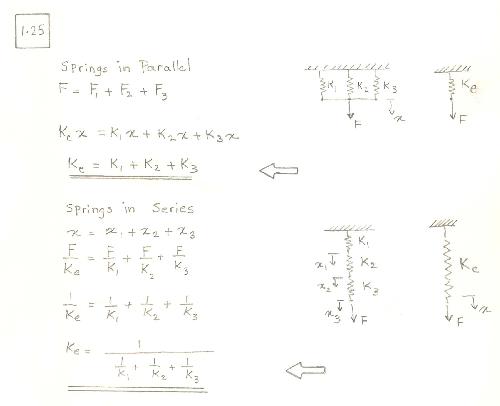 1.25
Springs in Parallel
F = F₁ + F₂ + F₃
Kₑ x = K₁ x + K₂ x + K₃ x
Kₑ = K₁ + K₂ + K₃
K₁ K₂ K₃
x
F
Kₑ
F
Springs in Series
x = x₁ + x₂ + x₃
F/Kₑ = F/K₁ + F/K₂ + F/K₃
1/Kₑ = 1/K₁ + 1/K₂ + 1/K₃
Kₑ = 1/(1/K₁ + 1/K₂ + 1/K₃)
K₁
x₁ K₂
x₂ K₃
x₃ F
Kₑ
x
F